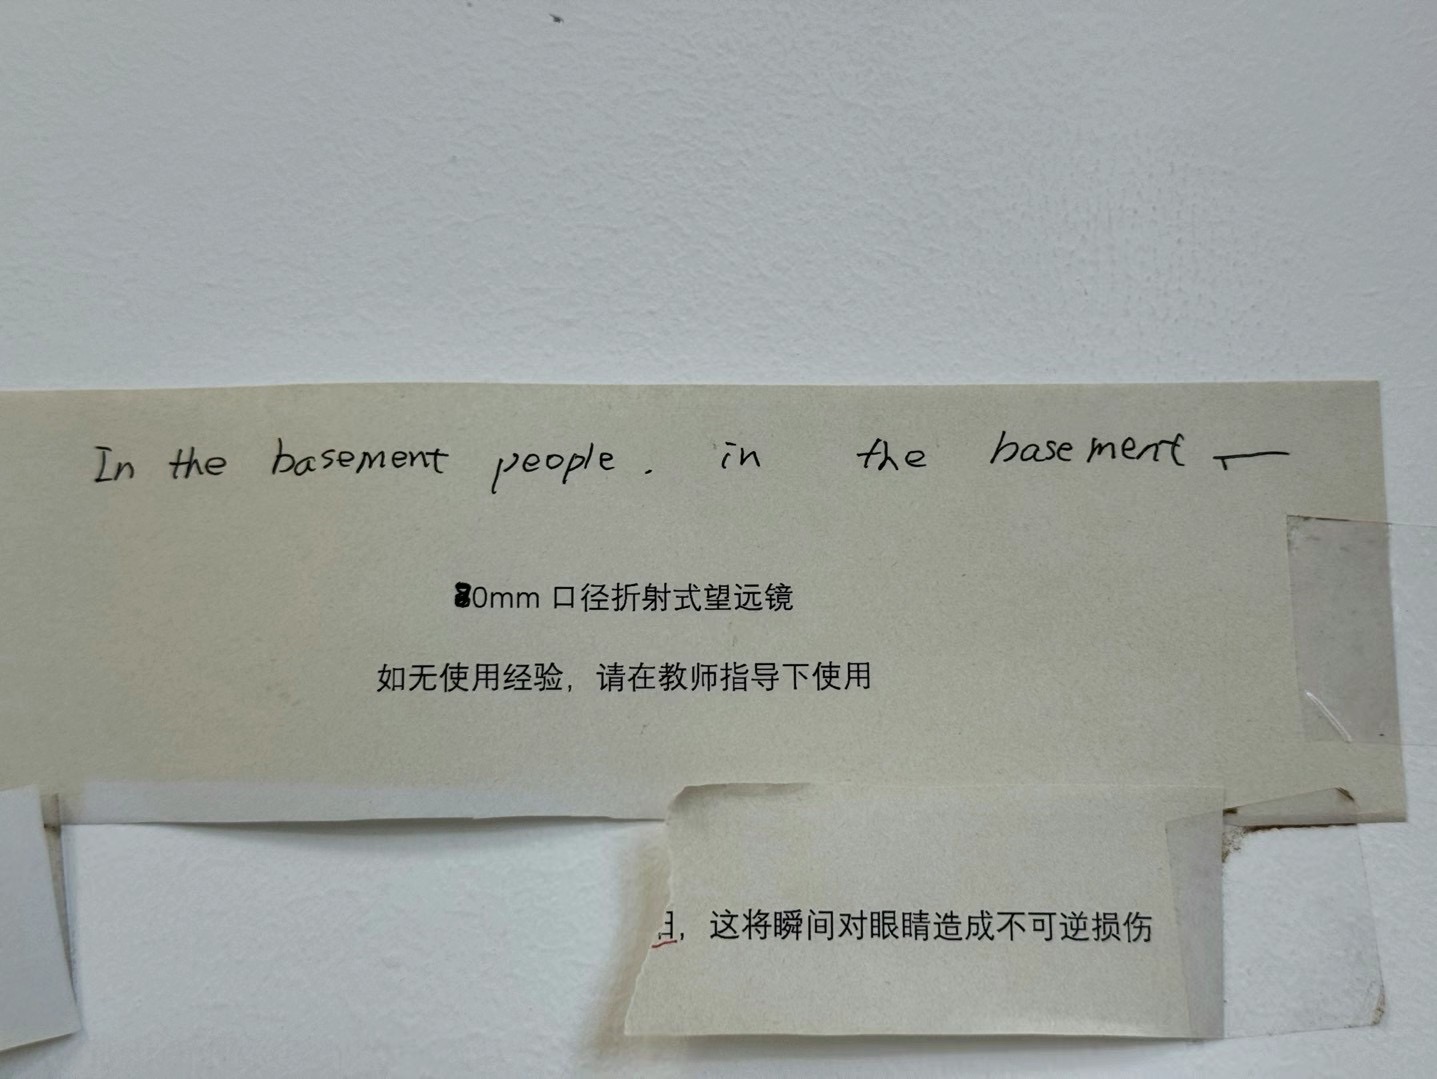 In the basement people. in the basement —
80mm 口径折射式望远镜
如无使用经验，请在教师指导下使用
，这将瞬间对眼睛造成不可逆损伤